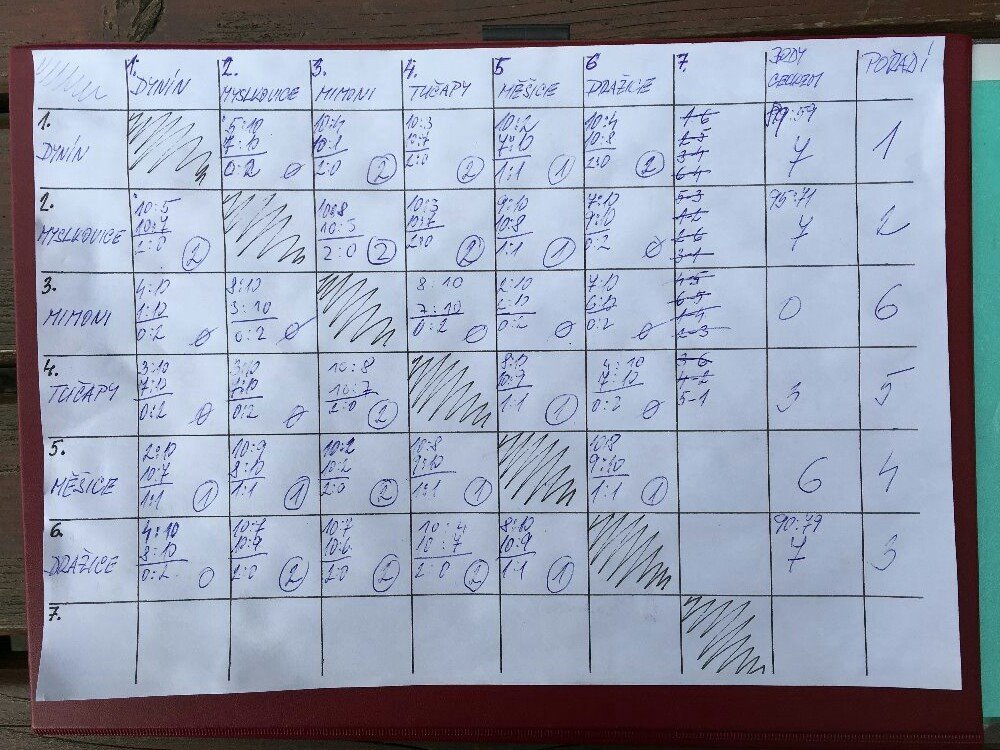 1. DYNÍN 2. MYSLKOVICE 3. MIMONI 4. TUČAPY 5 MĚŠICE 6 DRAŽICE 7. BODY CELKEM POŘADÍ
1. DYNÍN
5:10 10:4 10:3 10:2 10:4 1-6
7:10 10:1 10:7 7:10 10:8 2-5
0:2 0 2:0 2 2:0 2 1:1 1 2:0 2 3-4
6-4
:59
7 1
2. MYSLKOVICE
10:5 10:8 10:3 9:10 7:10 5-3
10:7 10:3 10:7 10:8 9:10 1-2
2:0 2 2:0 2 2:0 2 1:1 1 0:2 0 2-6
3-1
95:71
7 2
3. MIMONI
4:10 8:10 8:10 2:10 7:10 4-5
1:10 3:10 7:10 2:10 6:10 6-5
0:2 0 0:2 0 0:2 0 0:2 0 0:2 0 1-4
2-3
0 6
4. TUČAPY
3:10 3:10 10:8 8:10 4:10 3-6
7:10 7:10 10:7 10:9 7:10 4-2
0:2 0 0:2 0 2:0 2 1:1 1 0:2 0 5-1
3 5
5. MĚŠICE
2:10 10:9 10:2 10:8 10:8
10:7 8:10 10:2 9:10 9:10
1:1 1 1:1 1 2:0 2 1:1 1 1:1 1
6 4
6. DRAŽICE
4:10 10:7 10:7 10:4 8:10
8:10 10:9 10:6 10:7 10:9
0:2 0 2:0 2 2:0 2 2:0 2 1:1 1
90:79
7 3
7.